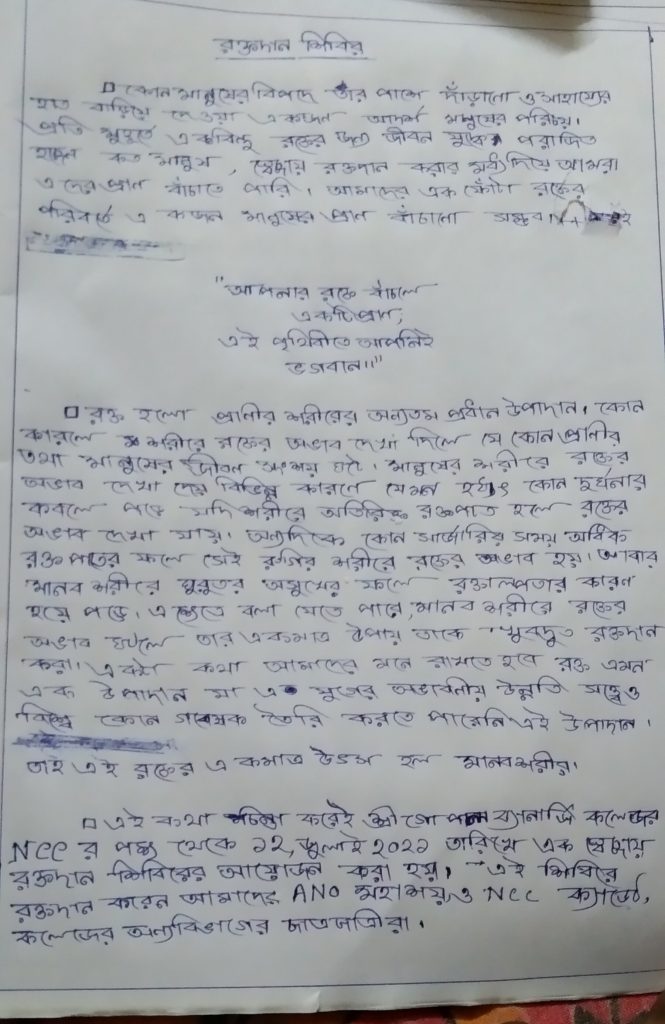 রক্তদান শিবির
□ কোন মানুষের বিপদে তাঁর পাশে দাঁড়ানো ও সাহায্যের
হাত বাড়িয়ে দেওয়া একজন আদর্শ মানুষের পরিচয়।
প্রতি মুহূর্তে একবিন্দু রক্তের জন্য জীবন যুদ্ধে পরাজিত
হচ্ছেন কত মানুষ, স্বেচ্ছায় রক্তদান করার মধ্য দিয়ে আমরা
এদের প্রাণ বাঁচাতে পারি। আমাদের এক ফোঁটা রক্তের
পরিবর্তে একজন মানুষের প্রাণ বাঁচানো সম্ভব
"আপনার রক্তে বাঁচলে
একটি প্রাণ,
এই পৃথিবীতে আপনিই
ভগবান॥"
□ রক্ত হলো প্রাণীর শরীরের অন্যতম প্রধান উপাদান। কোন
কারণে শরীরে রক্তের অভাব দেখা দিলে যে কোন প্রাণীর
তথা মানুষের জীবন সংশয় ঘটে। মানুষের শরীরে রক্তের
অভাব দেখা দেয় বিভিন্ন কারণে যেমন হঠাৎ কোন দুর্ঘনার
কবলে পড়ে যদি শরীরে অতিরিক্ত রক্তপাত হলে রক্তের
অভাব দেখা যায়। অন্যদিকে কোন সার্জারির সময় অধিক
রক্তপাতের ফলে সেই রুগির শরীরে রক্তের অভাব হয়। আবার
মানব শরীরে গুরুতর অসুখের ফলে রক্তাল্পতার কারণ
হয়ে পড়ে। এক্ষেত্রে বলা যেতে পারে, মানব শরীরে রক্তের
অভাব ঘটলে তার একমাত্র উপায় তাকে খুবদ্রুত রক্তদান
করা। একটা কথা আমাদের মনে রাখতে হবে রক্ত এমন
এক উপাদান যা এ যুগের অভাবনীয় উন্নতি সত্ত্বেও
বিশ্বে কোন গবেষক তৈরি করতে পারেনি এই উপাদান।
তাই এই রক্তের একমাত্র উৎস হল মানবশরীর।
□ এই কথা চিন্তা করেই শ্রীগোপাল ব্যানার্জি কলেজের
NCC র পক্ষ থেকে ১২, জুলাই ২০২১ তারিখে এক স্বেচ্ছায়
রক্তদান শিবিরের আয়োজন করা হয়। এই শিবিরে
রক্তদান করেন আমাদের ANO মহাশয়, ও NCC ক্যাডেট,
কলেজের অন্যবিভাগের ছাত্রছাত্রীরা।